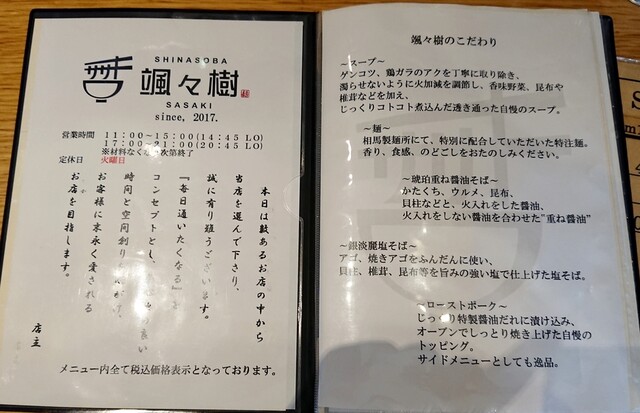 SHINASOBA
颯々樹
SASAKI
since, 2017.
営業時間 11:00～15:00(14:45 LO)
17:00～21:00(20:45 LO)
※材料なくなり次第終了
定休日 火曜日
本日は数あるお店の中から
当店を選んで下さり、
誠に有り難うございます。
『毎日通いたくなる』を
コンセプトとし、
時間と空間創り
お客様に末永く愛される
お店を目指します。
店主
メニュー内全て税込価格表示となっております。
颯々樹のこだわり
～スープ～
ゲンコツ、鶏ガラのアクを丁寧に取り除き、
濁らせないように火加減を調節し、香味野菜、昆布や
椎茸などを加え、
じっくりコトコト煮込んだ透き通った自慢のスープ。
～麺～
相馬製麺所にて、特別に配合していただいた特注麺。
香り、食感、のどごしをおたのしみください。
～琥珀重ね醤油そば～
かたくち、ウルメ、昆布、
貝柱などと、火入れをした醤油、
火入れをしない醤油を合わせた"重ね醤油"
～銀淡麗塩そば～
アゴ、焼きアゴをふんだんに使い、
貝柱、椎茸、昆布等を旨みの強い塩で仕上げた塩そば。
～ローストポーク～
じっくり特製醤油だれに漬け込み、
オーブンでしっとり焼き上げた自慢の
トッピング。
サイドメニューとしても逸品。